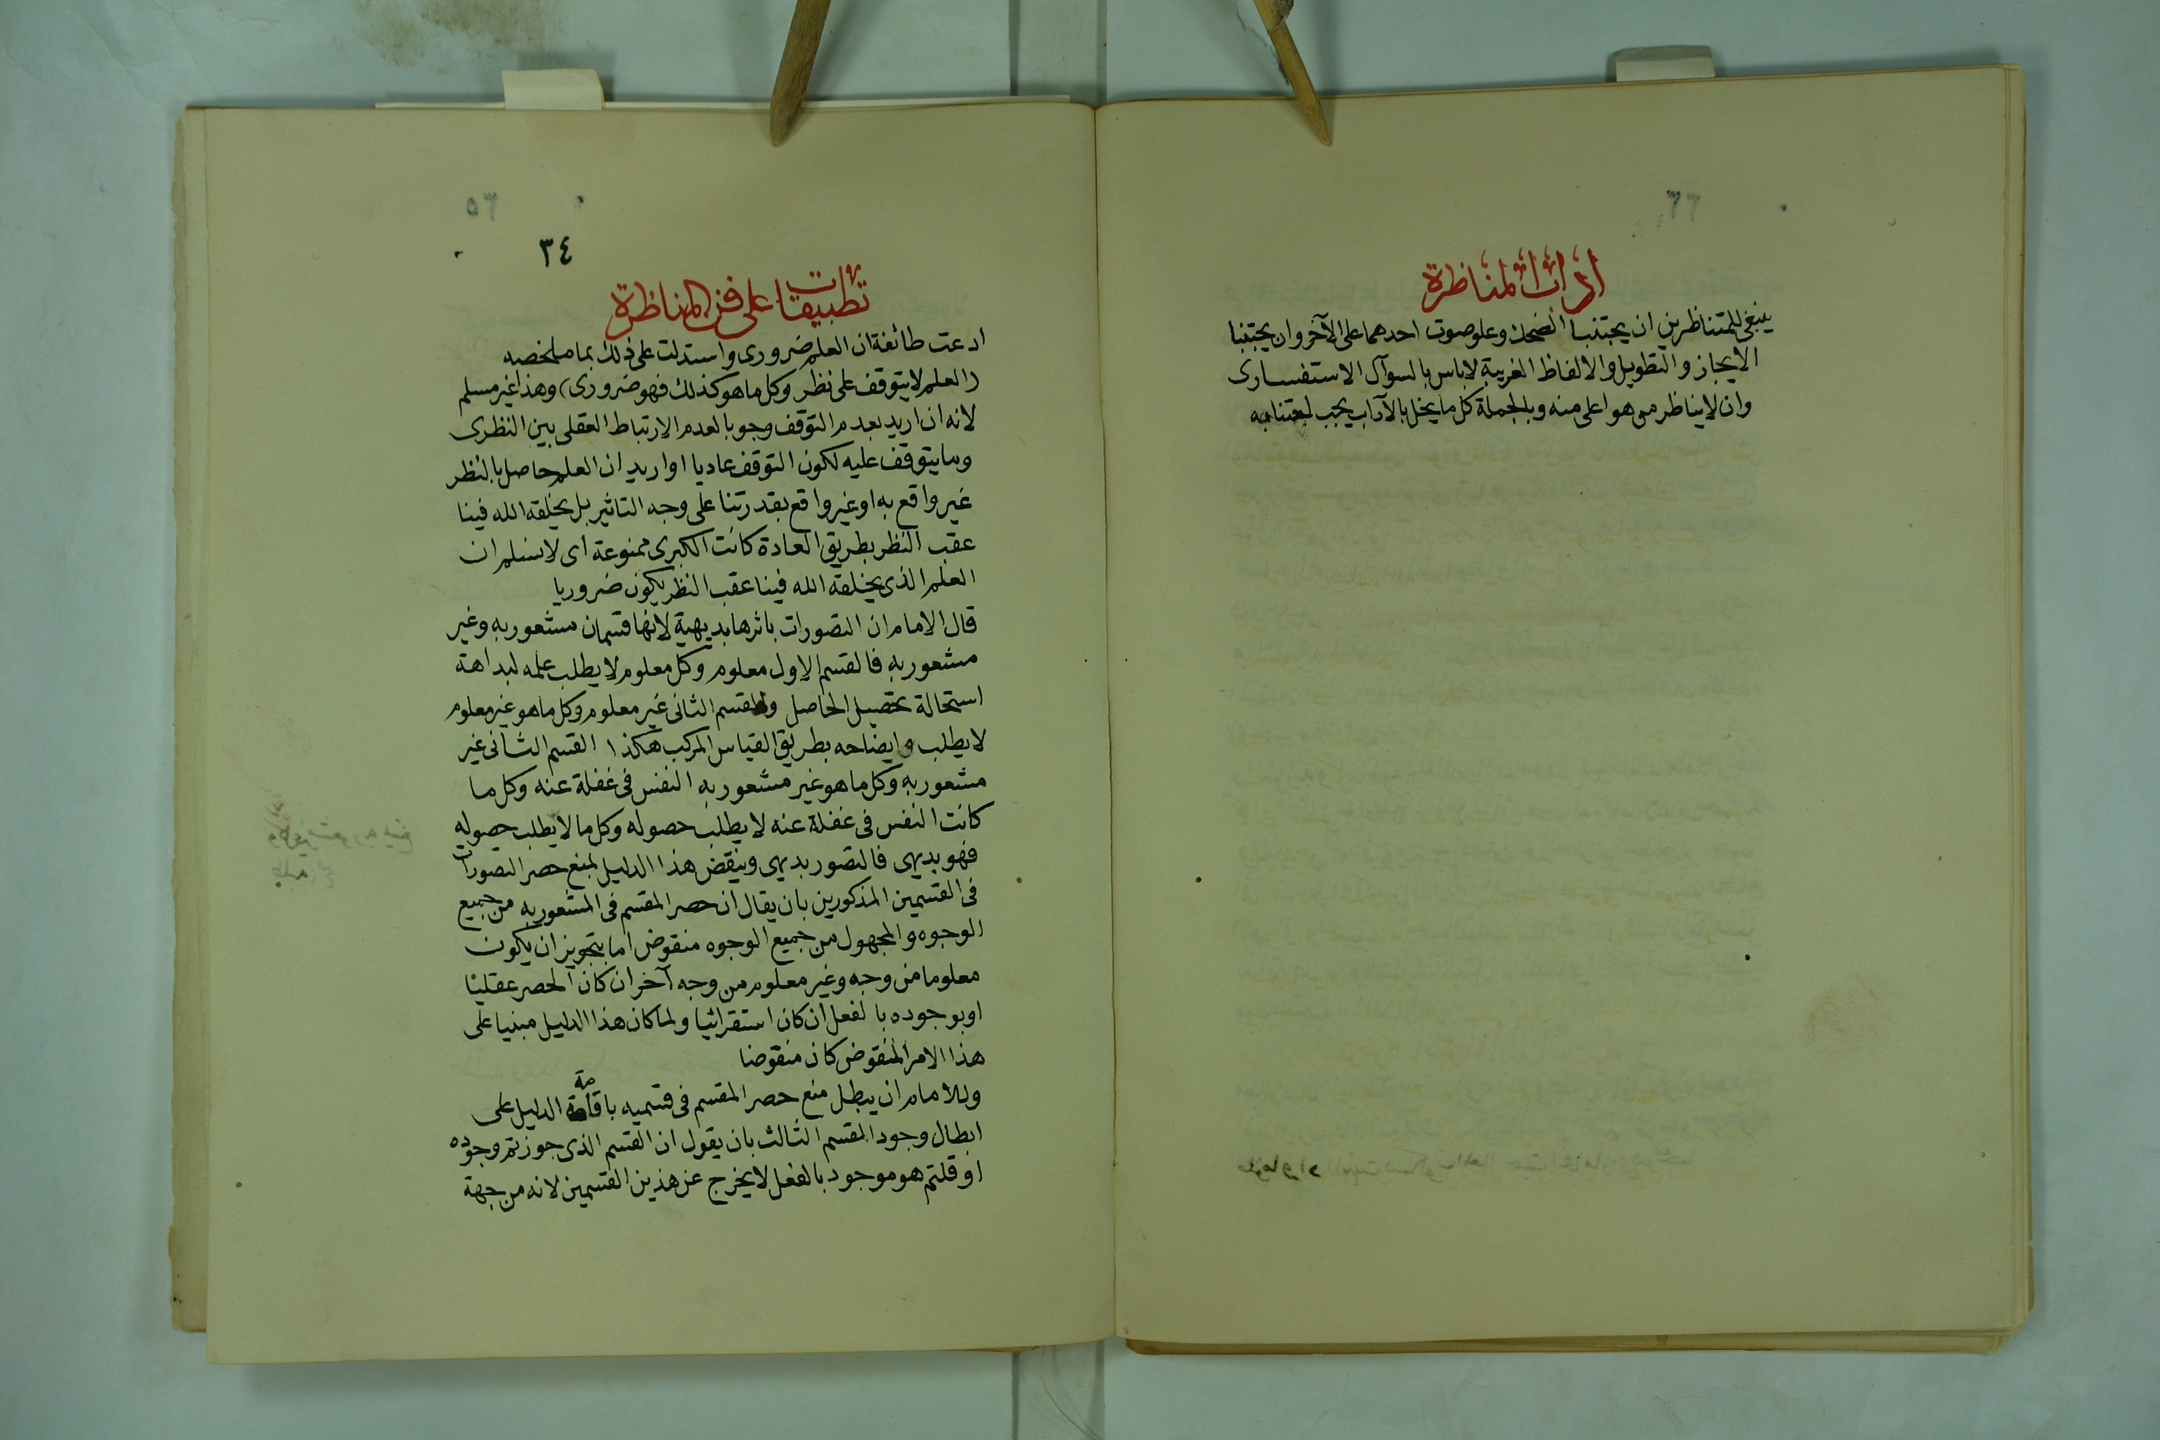 اداب المناظرة
ينبغى للمتناظرين ان يجتنبا الضحك وعلو صوت احدهما على الآخر وان يجتنبا
الايجاز والتطويل والالفاظ الغريبة لاباس بالسوآل الاستفسارى
وان لايناظر من هو اعلى منه وبالجملة كل ما يخل بالآداب يجب اجتنابه
٣٤
تطبيقات على فن المناظرة
ادعت طائفة ان العلم ضرورى واستدلت على ذلك بما ملخصه
(العلم لايتوقف على نظر وكل ما هو كذلك فهو ضرورى) وهذا غير مسلم
لانه ان اريد بعدم التوقف وجوبا لعدم الارتباط العقلى بين النظرى
وما يتوقف عليه لكون التوقف عاديا او اريد ان العلم حاصل بالنظر
غير واقع به او غير واقع بقدرتنا على وجه التاثير بل يخلقه الله فينا
عقب النظر بطريق العادة كانت الكبرى ممنوعة اى لانسلم ان
العلم الذى يخلقه الله فينا عقب النظر يكون ضروريا
قال الامام ان التصورات باثرها بديهية لانها قسمان مشعور به وغير
مشعور به فالقسم الاول معلوم وكل معلوم لا يطلب علمه لبداهة
استحالة تحصيل الحاصل والقسم الثانى غير معلوم وكل ما هو غير معلوم
لا يطلب وايضاحه بطريق القياس المركب هكذا القسم الثانى غير
مشعور به وكل ما هو غير مشعور به النفس فى غفلة عنه وكل ما
كانت النفس فى غفلة عنه لا يطلب حصوله وكل ما لا يطلب حصوله
فهو بديهى فالتصور بديهى وينقض هذا الدليل بمنع حصر التصورات
فى القسمين المذكورين بان يقال ان حصر المقسم فى المشعور به من جميع
الوجوه والمجهول من جميع الوجوه منقوض اما بتجويز ان يكون
معلوما من وجه وغير معلوم من وجه آخر ان كان الحصر عقليا
او بوجوده بالفعل ان كان استقرائيا ولما كان هذا الدليل مبنيا على
هذا الامر المنقوض كان منقوضا
وللامام ان يبطل منع حصر المقسم فى قسميه باقامة الدليل على
ابطال وجود القسم الثالث بان يقول ان القسم الذى جوزتم وجوده
او قلتم هو موجود بالفعل لا يخرج عن هذين القسمين لانه من جهة